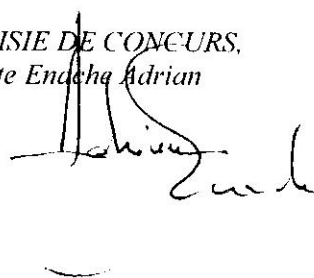 ISIE DE CONCURS,
te Enache Adrian
Adrian